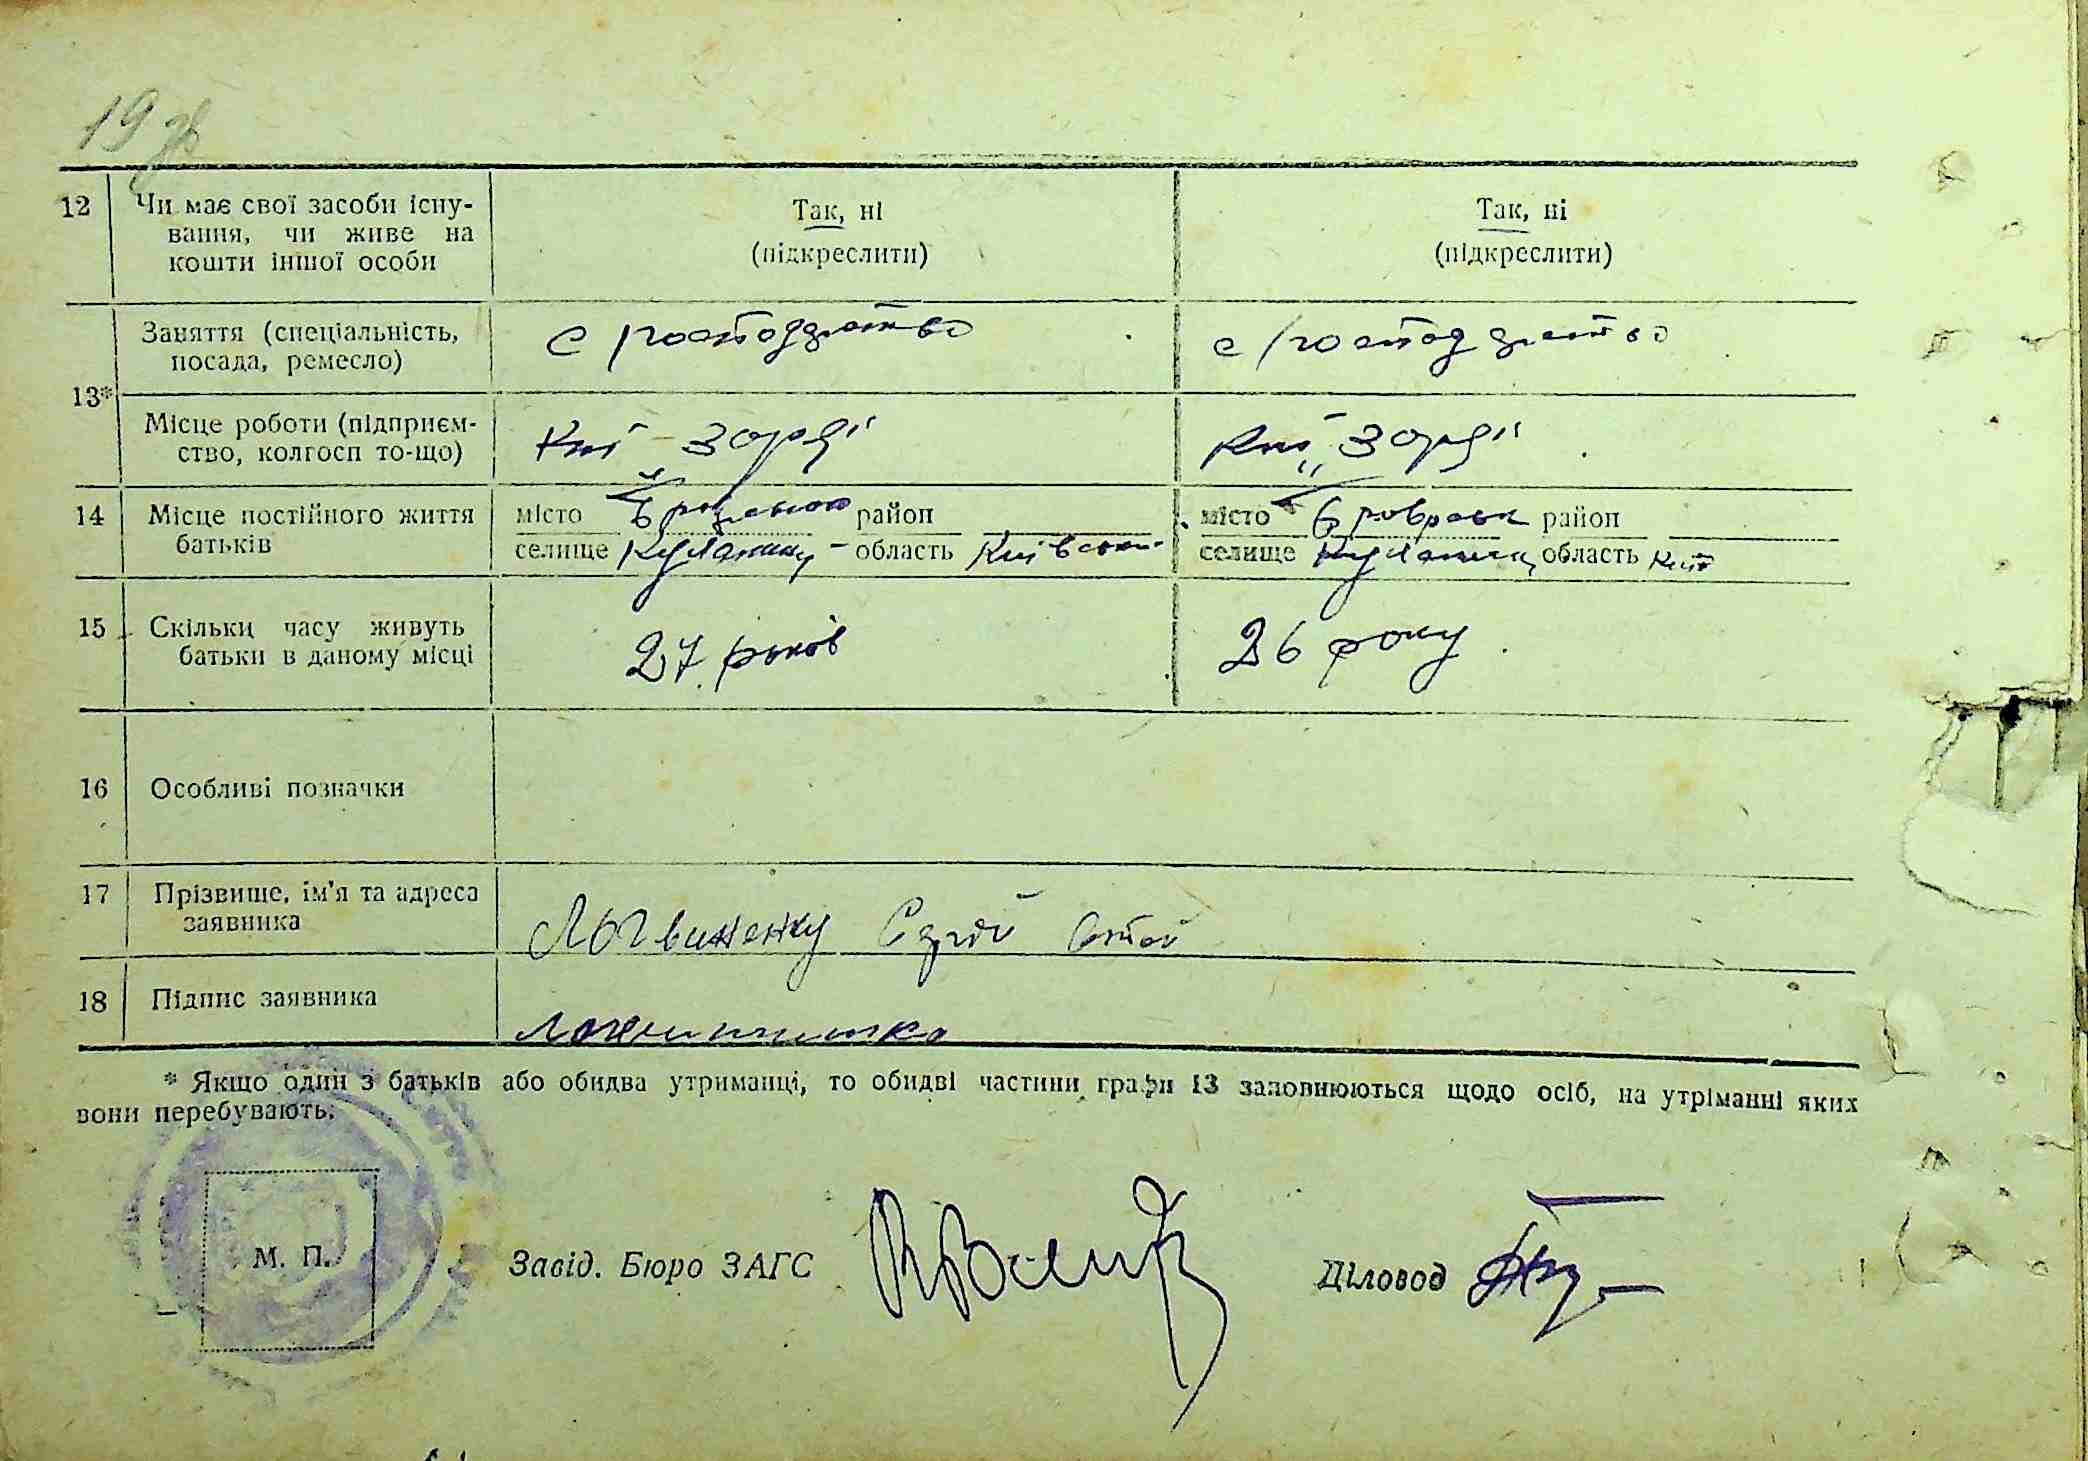 19 зв
12 Чи має свої засоби існу- Так, ні Так, ні
вання, чи живе на
кошти іншої особи (підкреслити) (підкреслити)
Заняття (спеціальність, с/господарство с/господарство
посада, ремесло)
13*
Місце роботи (підприєм- Кнї Зорі Кнї Зорі
ство, колгосп то-що)
14 Місце постійного життя місто район місто Броварськ район
батьків селище область Київськ селище область Київ
15 Скільки часу живуть 27 років 26 року
батьки в даному місці
16 Особливі позначки
17 Прізвище, ім'я та адреса Логвиненку Сергій
заявника
18 Підпис заявника
* Якщо один з батьків або обидва утриманці, то обидві частини графи 13 заповнюються щодо осіб, на утріманні яких
вони перебувають.
М. П. Завід. Бюро ЗАГС Діловод